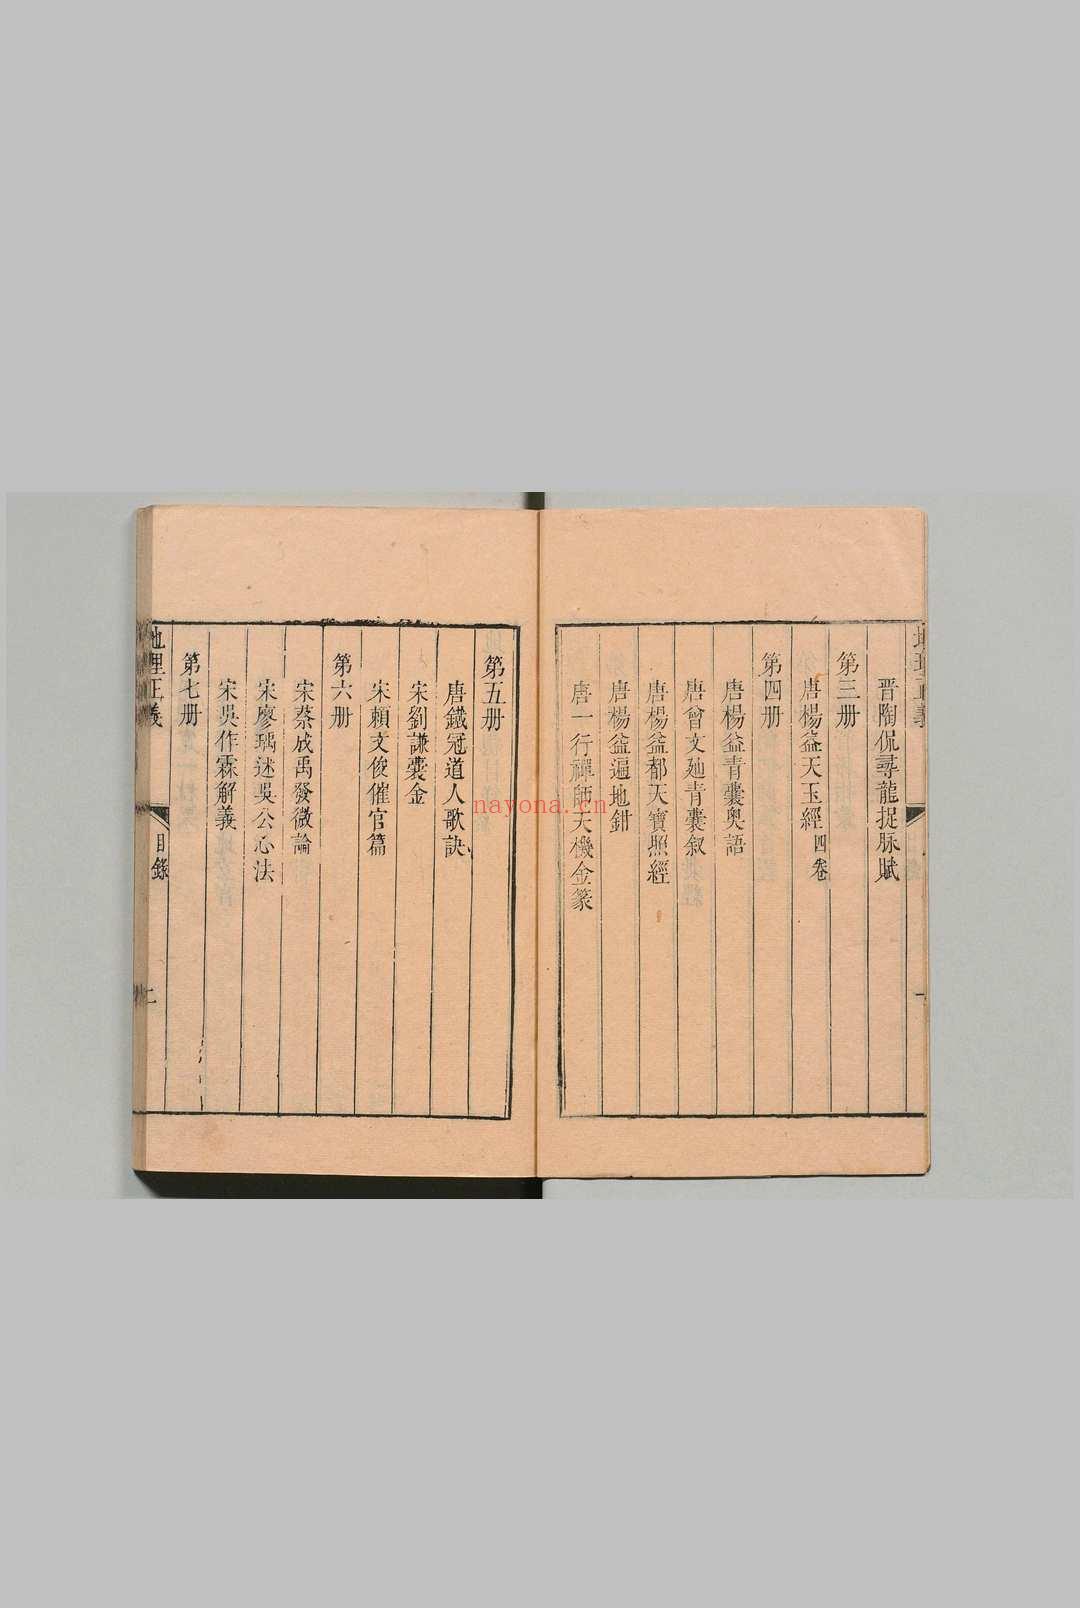 晋陶侃尋龍捉脉賦
第三册
唐楊益天玉經四卷
第四册
唐楊益青囊奥語
唐曾文𨒪青囊叙
唐楊益都天寶照經
唐楊益遍地鉗
唐一行禪師天機金篆
第五册
唐鐵冠道人歌訣
宋劉謙囊金
宋賴文俊催官篇
第六册
宋蔡成禹發微論
宋廖瑀述吳公心法
宋吳作霖解義
第七册
地理正義
目錄
二
nayona.cn